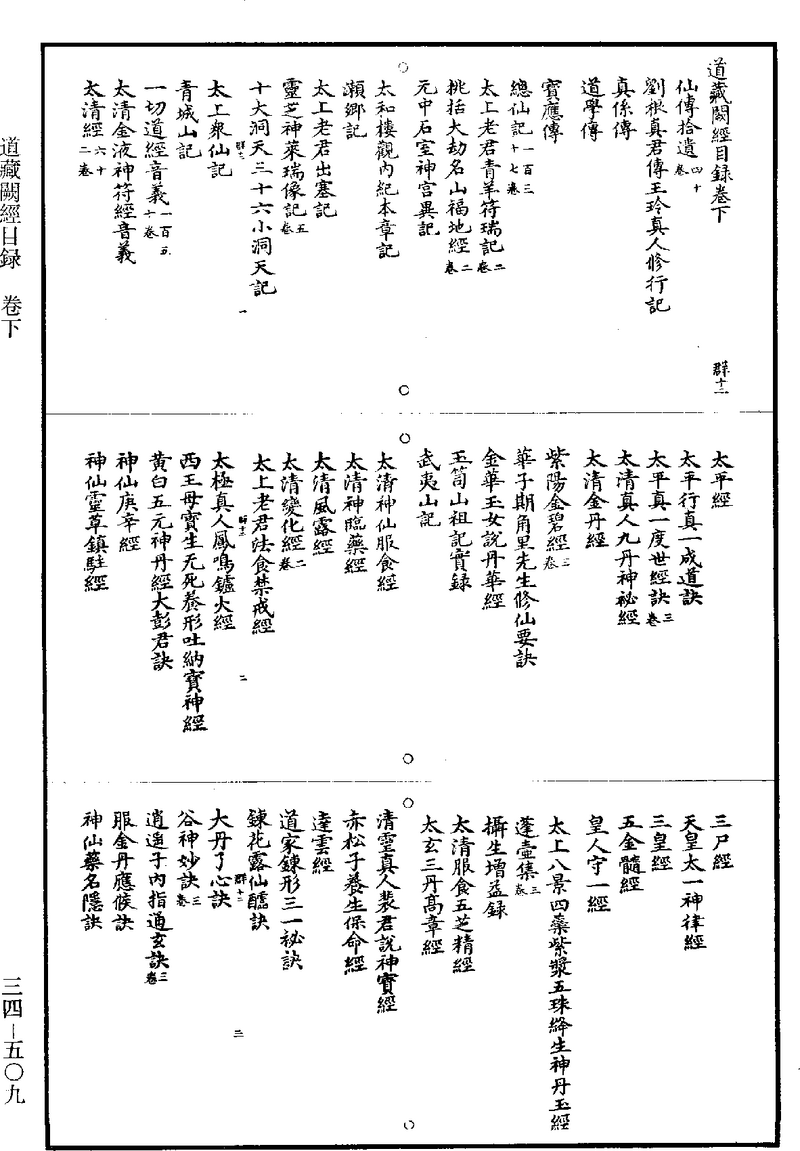 道藏闕經目録卷下
群十二
仙傳拾遺四十卷
劉根真君傳王玲真人修行記
真係傳
道學傳
寶應傳
總仙記一百三十七卷
太上老君青羊符瑞記二卷
桃括大劫名山福地經二卷
元中石室神宫異記
太和樓觀内紀本章記
瀨鄉記
太上老君出塞記
靈芝神菜瑞像記五卷
十大洞天三十六小洞天記
群十二
一
太上衆仙記
青城山記
一切道經音義一百五十卷
太清金液神符經音義
太清經六十二卷
太平經
太平行真一成道訣
太平真一度世經訣三卷
太清真人九丹神秘經
太清金丹經
紫陽金碧經三卷
華子期角里先生修仙要訣
金華玉女說丹華經
玉笥山祖記實錄
武夷山記
太清神仙服食經
太清神臨藥經
太清風露經
太清變化經二卷
太上老君法食禁戒經
群十二
二
太極真人鳳鳴鑪火經
西王母寶生无死養形吐納寶神經
黄白五元神丹經大彭君訣
神仙庚辛經
神仙靈草鎮駐經
三尸經
天皇太一神律經
三皇經
五金髓經
皇人守一經
太上八景四藥紫漿五珠絳生神丹玉經
蓬壺集三卷
攝生增益録
太清服食五芝精經
太玄三丹髙章經
清靈真人裴君說神寶經
赤松子養生保命經
達雲經
道家鍊形三一秘訣
鍊花露仙醹訣
群十二
三
大丹了心訣
谷神妙訣三卷
逍遥子内指通玄訣三卷
服金丹應候訣
神仙藥名隱訣
道藏闕經目録　卷下
三四—五〇九